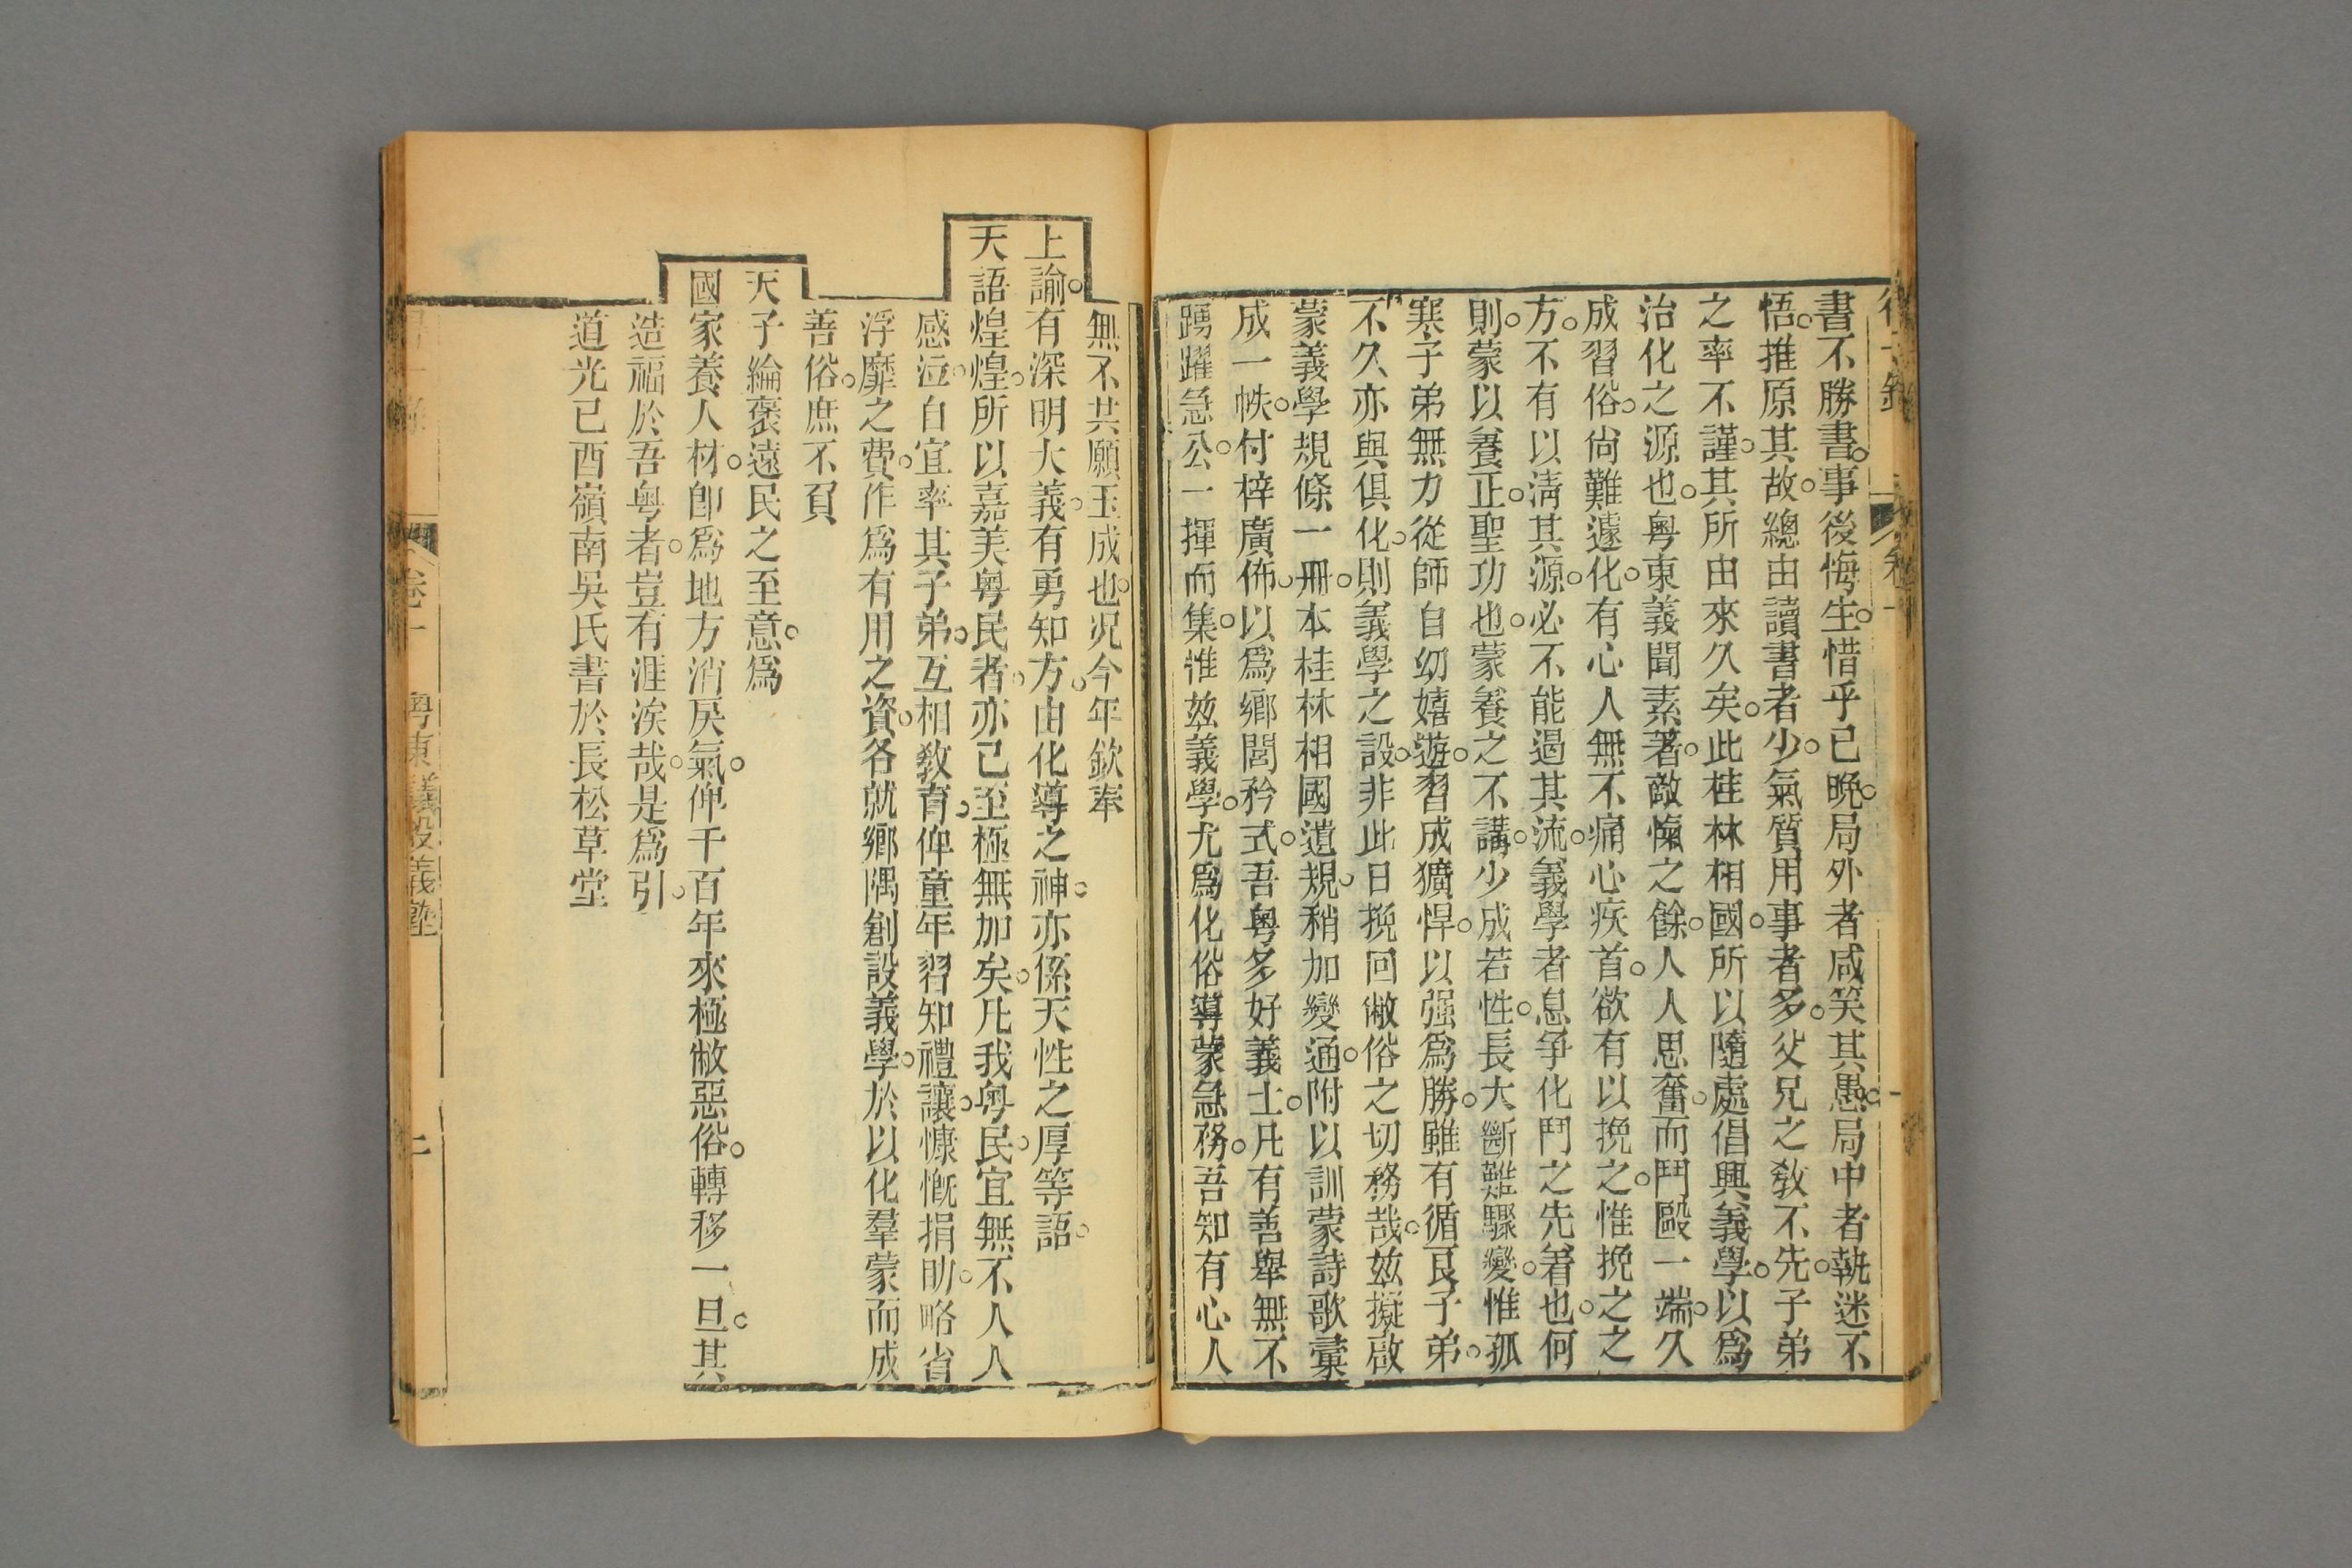 書不勝書。事後悔生。惜乎已晚。局外者咸笑其愚。局中者執迷不
悟。推原其故。總由讀書者少。氣質用事者多。父兄之教不先。子弟
之率不謹。其所由來久矣。此桂林相國。所以隨處倡興義學。以爲
治化之源也。粤東義聞素著。敵愾之餘。人人思奮。而鬥毆一端。久
成習俗。尙難遽化。有心人無不痛心疾首。欲有以挽之。惟挽之之
方。不有以淸其源。必不能遏其流。義學者。息爭化鬥之先着也。何
則。蒙以養正。聖功也。蒙養之不講。少成若性。長大斷難驟變。惟孤
寒子弟無力從師。自幼嬉遊。習成獷悍。以强爲勝。雖有循良子弟。
不久亦與俱化。則義學之設。非此日挽回敝俗之切務哉。茲擬啟
蒙義學規條一冊。本桂林相國遺規。稍加變通。附以訓蒙詩歌。彙
成一帙。付梓廣佈。以爲鄉閭矜式。吾粤多好義士。凡有善舉。無不
踴躍急公。一揮而集。惟茲義學。尤爲化俗導蒙急務。吾知有心人
無不共願玉成也。况今年欽奉
上諭。有深明大義。有勇知方。由化導之神。亦係天性之厚等語。
天語煌煌。所以嘉美粤民者。亦已至極無加矣。凡我粤民。宜無不人人
感泣。自宜率其子弟。互相教育。俾童年習知禮讓。慷慨捐助。略省
浮靡之費。作爲有用之資。各就鄉隅創設義學。於以化羣蒙而成
善俗。庶不負
天子綸褒遠民之至意。爲
國家養人材。卽爲地方消戾氣。俾千百年來極敝惡俗。轉移一旦。其
造福於吾粤者。豈有涯涘哉。是爲引。
道光己酉嶺南吳氏書於長松草堂
卷一
粤東議設義塾